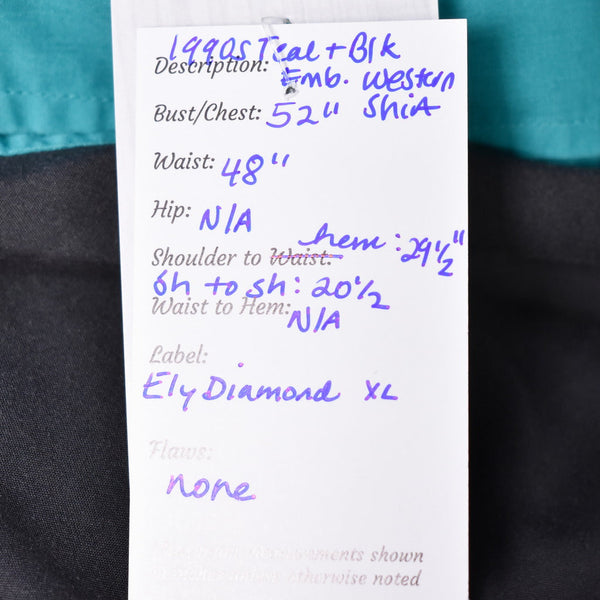 1990s Teal + Blk
Description: Emb. Western
Bust/Chest: 52" Shirt
Waist: 48"
Hip: N/A
Shoulder to Waist: hem: 29 1/2"
Sh to sh: 20 1/2
Waist to Hem: N/A
Label:
Ely Diamond XL
Flaws:
none
measurements shown
otherwise noted